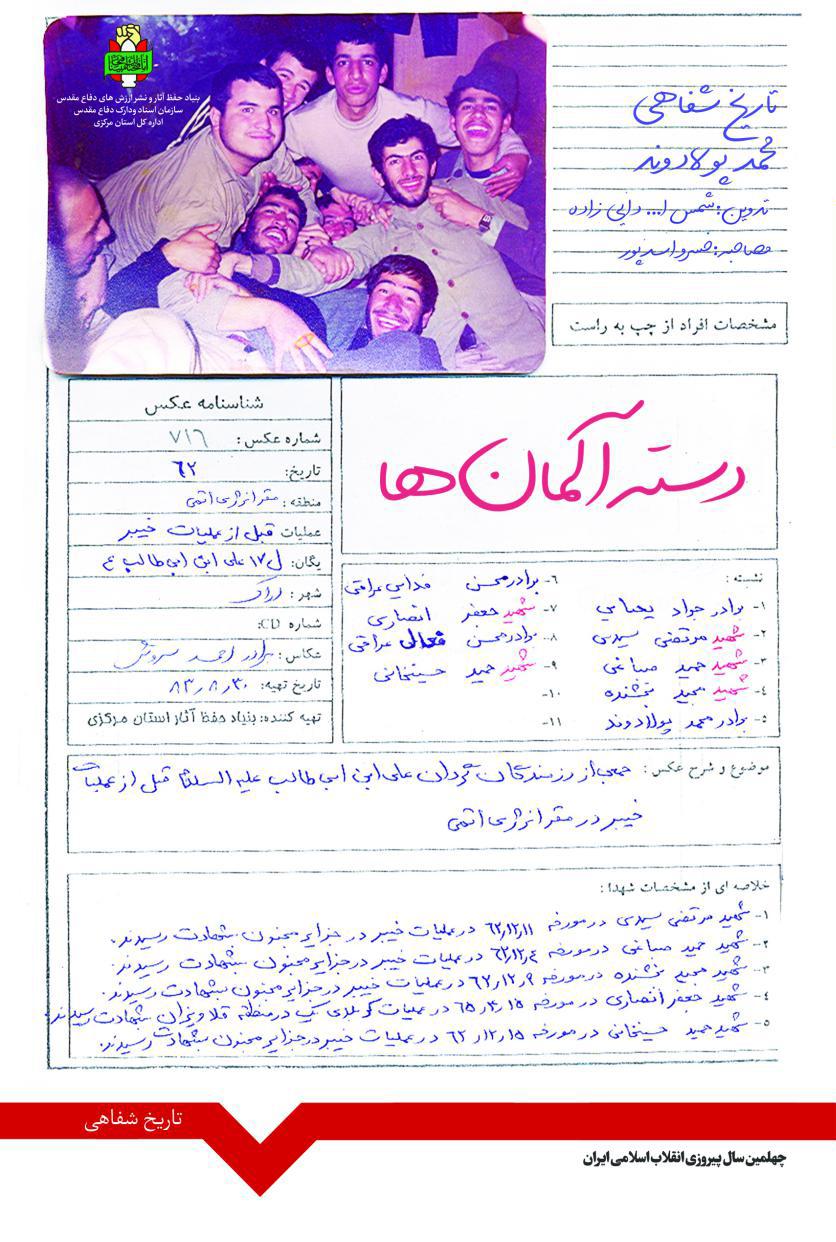 بنیاد حفظ آثار و نشر ارزش های دفاع مقدس
سازمان اسناد ومدارک دفاع مقدس
اداره کل استان مرکزی
تاریخ شفاهی
محمد پولادوند
تدوین: شمس ا... دایی زاده
مصاحبه: خسرو اسدپور
مشخصات افراد از چپ به راست
شناسنامه عکس
شماره عکس: ۷۱۶
تاریخ: ۶۲
منطقه: مقر انرژی اتمی
عملیات قبل از عملیات خیبر
یگان: ل ۱۷ علی ابن ابی طالب ع
شهر: اراک
شماره CD:
عکاس: برادر احمد سروش
تاریخ تهیه: ۸۳٫۸٫۳۰
تهیه کننده: بنیاد حفظ آثار استان مرکزی
دسته آلمان‌ها
نشسته:
۱- برادر جواد یحیایی
۲- شهید مرتضی سیدی
۳- شهید حمید صباغی
۴- شهید مجید بخشنده
۵- برادر محمد پولادوند
۶- برادر محسن فدایی عراقی
۷- شهید جعفر انصاری
۸- برادر محسن فعالی عراقی
۹- شهید حمید حسینخانی
۱۰-
۱۱-
موضوع و شرح عکس: جمعی از رزمندگان گردان علی ابن ابی طالب علیه السلام قبل از عملیات
خیبر در مقر انرژی اتمی
خلاصه ای از مشخصات شهدا:
۱- شهید مرتضی سیدی در مورخه ۶۲٫۱۲٫۱۱ در عملیات خیبر در جزایر مجنون بشهادت رسیدند.
۲- شهید حمید صباغی در مورخه ۶۲٫۱۲٫۴ در عملیات خیبر در جزایر مجنون بشهادت رسیدند.
۳- شهید مجید بخشنده در مورخه ۶۲٫۱۲٫۹ در عملیات خیبر در جزایر مجنون بشهادت رسیدند.
۴- شهید جعفر انصاری در مورخه ۶۵٫۴٫۱۵ در عملیات کربلای یک در منطقه قلاویزان بشهادت رسیدند.
۵- شهید حمید حسینخانی در مورخه ۶۲٫۱۲٫۱۵ در عملیات خیبر در جزایر مجنون بشهادت رسیدند.
تاریخ شفاهی
چهلمین سال پیروزی انقلاب اسلامی ایران